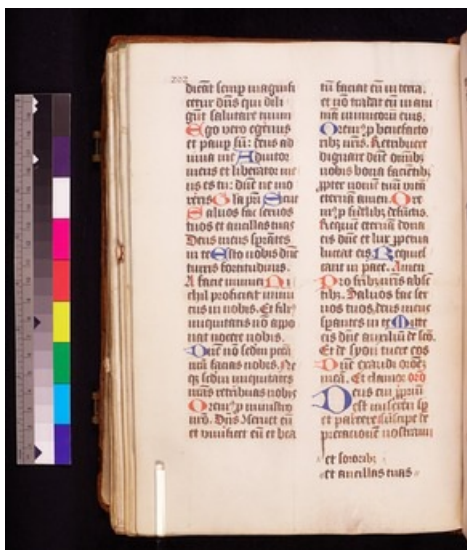 dicāt semp magnifi
cetur dn̄s qui dili
gūt salutare tuum
Ego vero egenus
et paup sū: deus ad
iuua me Adiutor
meus et liberator me
us es tu: dn̄e ne mo
reris Glia pr̄i
Saluos fac seruos
tuos et ancillas tuas
Deus meus sperātes
in te Esto nobis dn̄e
turris fortitudinis
A facie inimici Ni
chil proficiat inimi
cus in nobis. Et fili
iniquitatis nō appo
nat nocere nobis.
Dn̄e nō scdm pctā
nrā facias nobis. Ne
qz scdm iniquitates
nr̄as retribuas nobis
Orem⁹ p ministro
nro. Dn̄s 9seruet eū
et viuificet eū et bea
tū faciat eū in terra.
et nō tradat eū in ani
mā inimicorū eius.
Orem⁹ p benefacto
ribz nr̄is. Retribuere
dignare dn̄e omībz
nobis bona faciētibz
ppter nomē tuū vitā
eternā amen. Ore
m⁹ p fidelibz defūctis.
Requiē eternā dona
eis dn̄e et lux ppetua
luceat eis Requies
cant in pace. Amen
Pro fr̄ibz nr̄is absē
tibz. Saluos fac ser
uos tuos deus meus
sperantes in te Mitte
eis dn̄e auxiliū de scō.
Et de syon tuere eos
Dn̄e exaudi oroēz
meā. Et clamor oro
Deus cui ppriū
est misereri sp
et parcere suscipe de
precationē nostram
et sororibz
et ancillas tuas